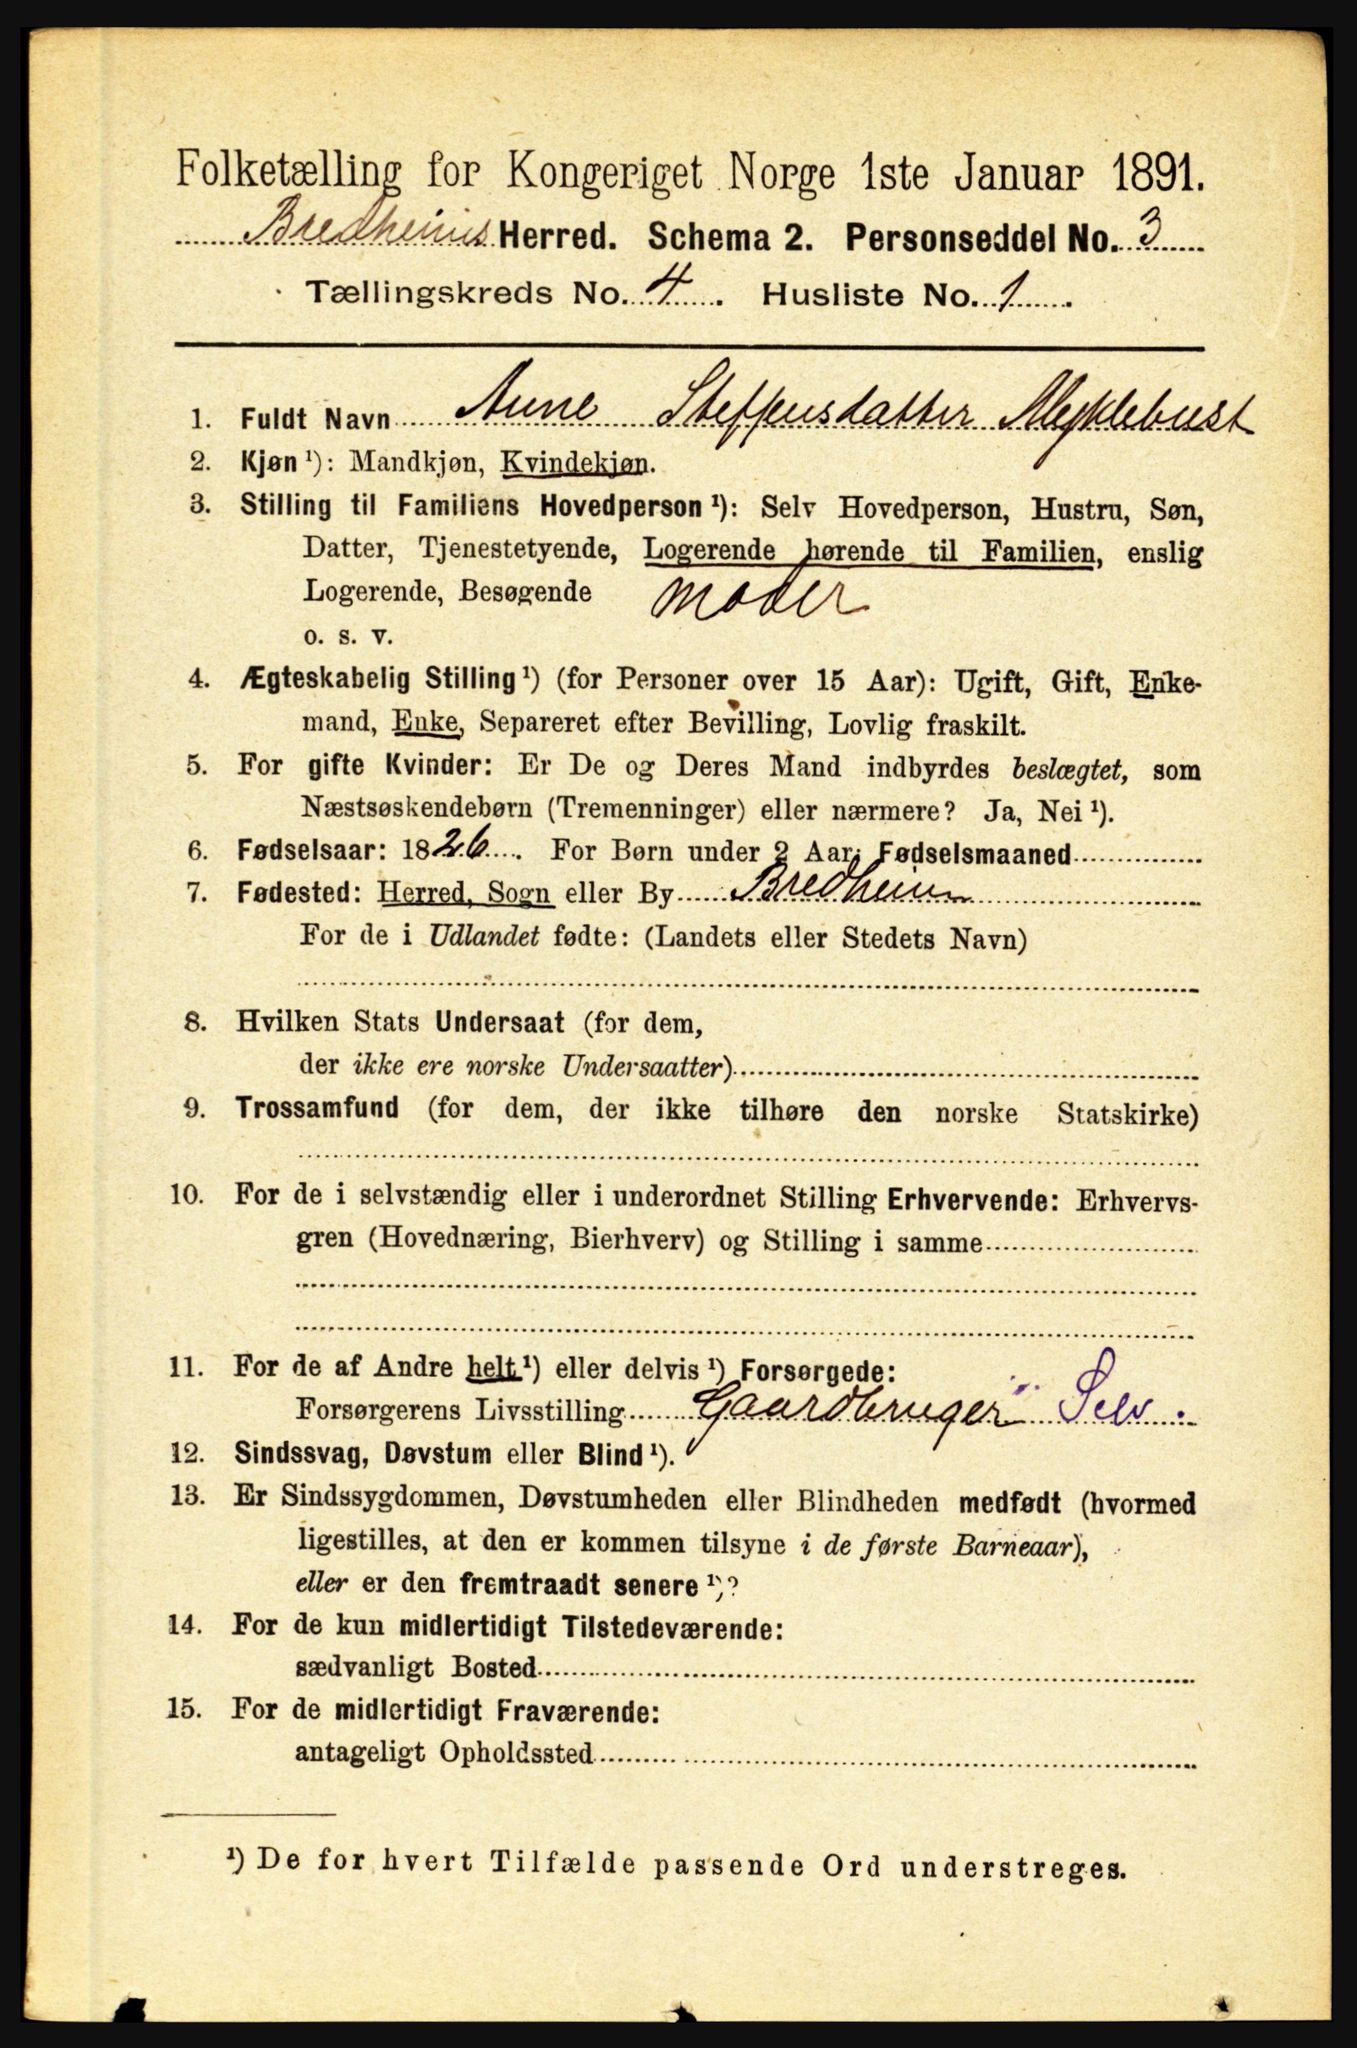 Folketælling for Kongeriget Norge 1ste Januar 1891.
Bredheims Herred. Schema 2. Personseddel No. 3
Tællingskreds No. 4. Husliste No. 1.
1. Fuldt Navn Anne Steffensdatter Myklebust
2. Kjøn ¹): Mandkjøn, Kvindekjøn.
3. Stilling til Familiens Hovedperson ¹): Selv Hovedperson, Hustru, Søn,
Datter, Tjenestetyende, Logerende hørende til Familien, enslig
Logerende, Besøgende moder
o. s. v.
4. Ægteskabelig Stilling ¹) (for Personer over 15 Aar): Ugift, Gift, Enke-
mand, Enke, Separeret efter Bevilling, Lovlig fraskilt.
5. For gifte Kvinder: Er De og Deres Mand indbyrdes beslægtet, som
Næstsøskendebørn (Tremenninger) eller nærmere? Ja, Nei ¹).
6. Fødselsaar: 1826. For Børn under 2 Aar: Fødselsmaaned
7. Fødested: Herred, Sogn eller By Bredheim
For de i Udlandet fødte: (Landets eller Stedets Navn)
8. Hvilken Stats Undersaat (for dem,
der ikke ere norske Undersaatter)
9. Trossamfund (for dem, der ikke tilhøre den norske Statskirke)
10. For de i selvstændig eller i underordnet Stilling Erhvervende: Erhvervs-
gren (Hovednæring, Bierhverv) og Stilling i samme
11. For de af Andre helt ¹) eller delvis ¹) Forsørgede:
Forsørgerens Livsstilling Gaardbruger Selv.
12. Sindssvag, Døvstum eller Blind ¹).
13. Er Sindssygdommen, Døvstumheden eller Blindheden medfødt (hvormed
ligestilles, at den er kommen tilsyne i de første Barneaar),
eller er den fremtraadt senere ¹)?
14. For de kun midlertidigt Tilstedeværende:
sædvanligt Bosted
15. For de midlertidigt Fraværende:
antageligt Opholdssted
¹) De for hvert Tilfælde passende Ord understreges.